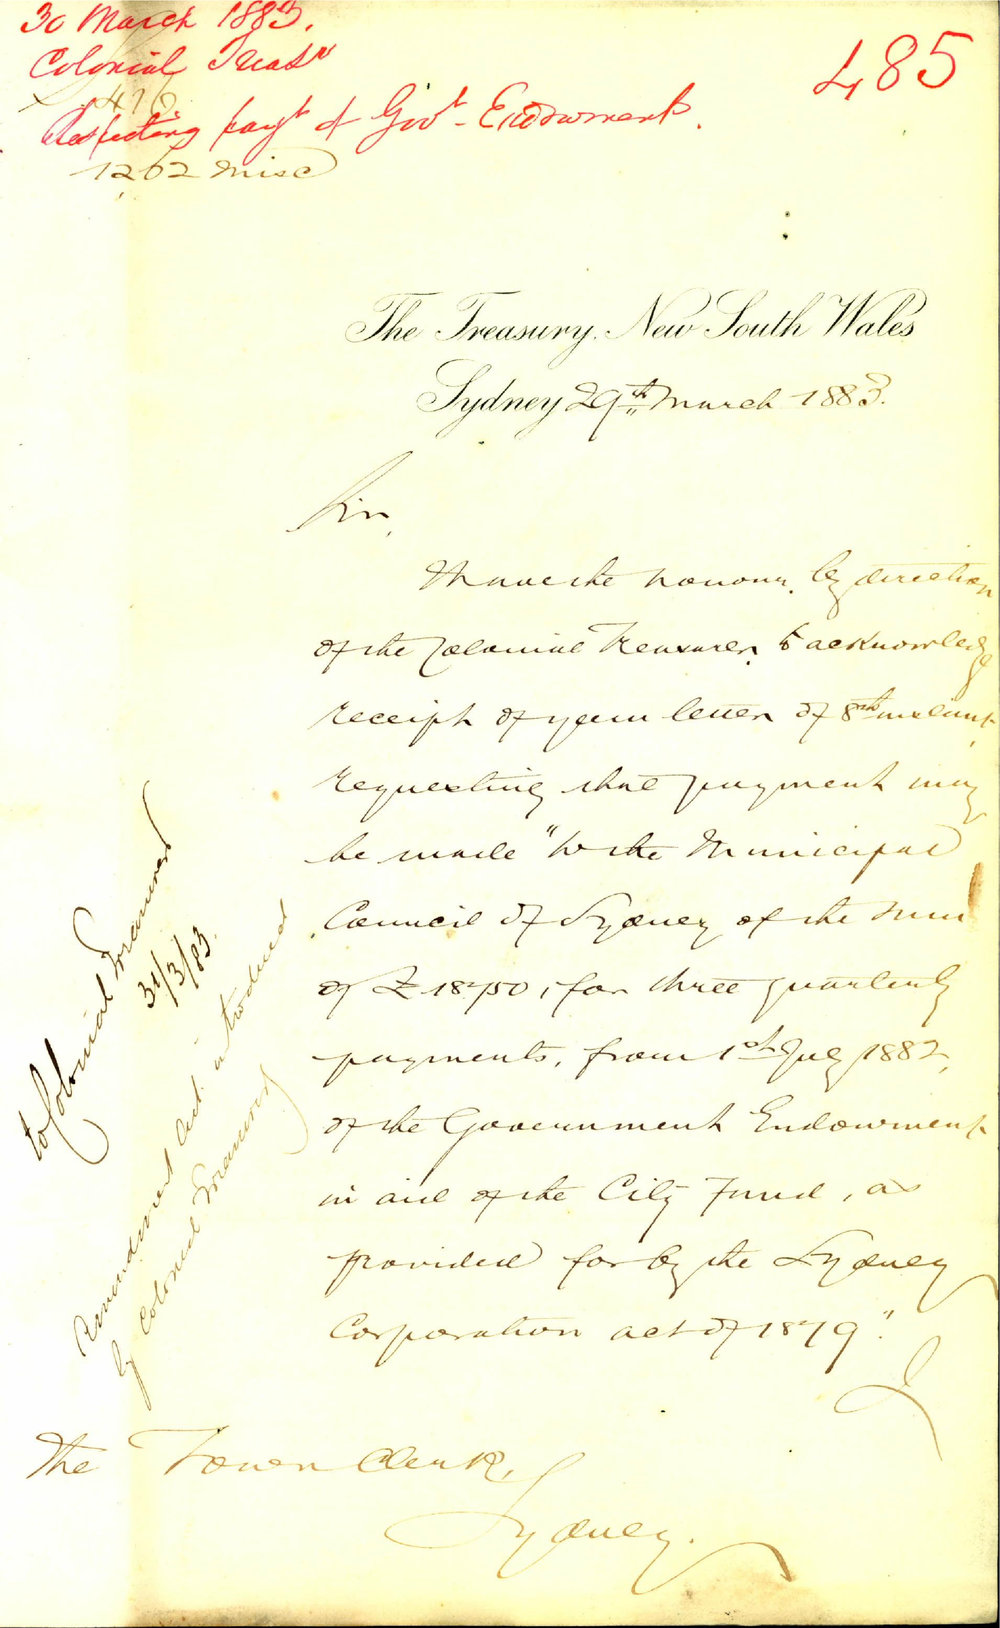 30 March 1883.
Colonial Treasr
416
Respecting payt of Govt Endowment.
1262 Misc
485
The Treasury, New South Wales
Sydney 29th March 1883.
Sir,
I have the honour, by direction
of the Colonial Treasurer, to acknowledge
receipt of your letter of 8th instant
requesting that payment may
be made "to the Municipal
Council of Sydney of the sum
of £18750, for three quarterly
payments, from 1st July 1882,
of the Government Endowment
in aid of the City Fund, as
provided for by the Sydney
Corporation act of 1879".
I
The Town Clerk,
Sydney.
to Colonial Treasurer
31/3/83.
Amendment Act introduced
by Colonial Treasurer